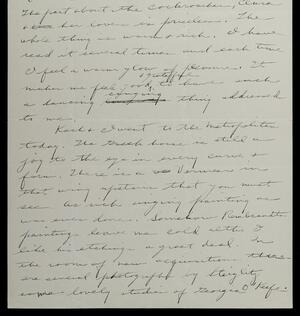 The part about the cockroaches, Clara
her lover is priceless. The
whole thing so warm & rich. I have
read it several times and each time
I feel a warm glow of pleasure. It
makes me feel good & grateful to have such
a dancing singing thing addressed
to me.
I went to the Metropolitan
today. The Greek horse is still a
joy to the eye in every curve &
form. There is a Vermeer in
that wing upstairs that you must
see. As such singing painting as
was ever done. Somehow Rembrandt's
paintings leave me cold altho I
like his etchings a great deal. In
the room of new acquisitions there
are several photographs by Stieglitz
some lovely studies of Georgia O'Keefe.